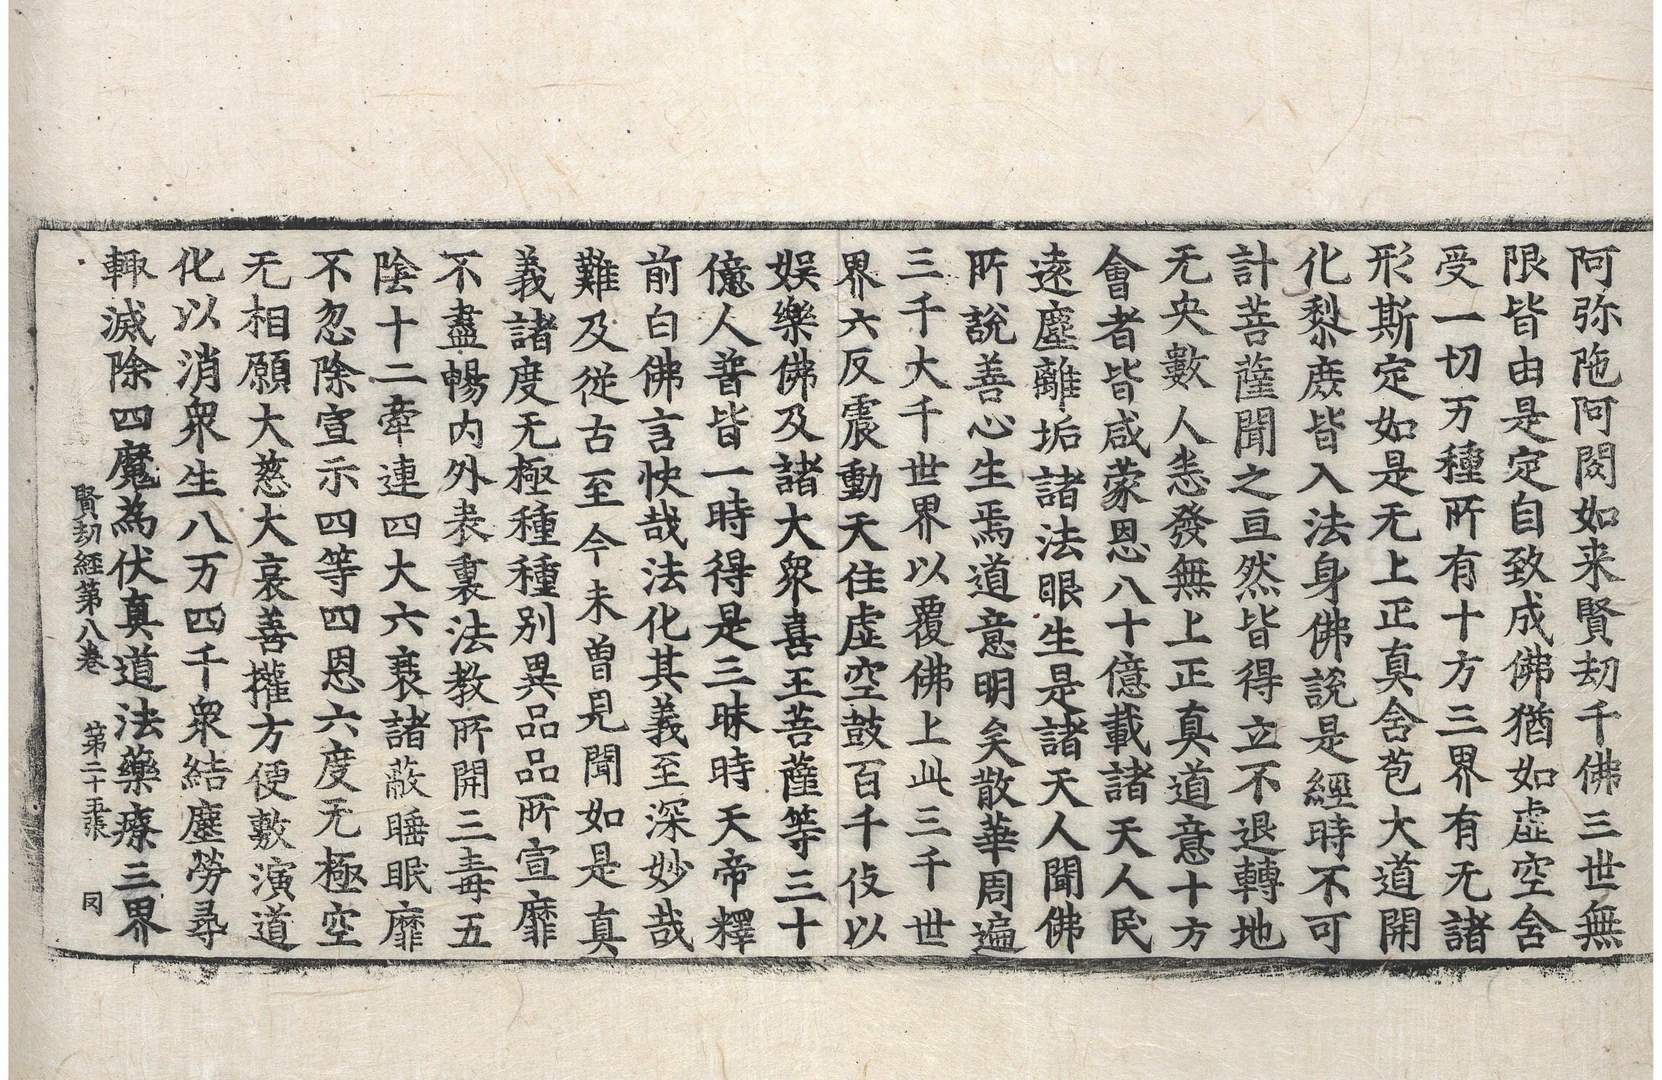 阿弥陁阿閦如来賢劫千佛三世無
限皆由是定自致成佛猶如虛空含
受一切万種所有十方三界有无諸
形斯定如是无上正真含苞大道開
化黎庶皆入法身佛說是經時不可
計菩薩聞之亘然皆得立不退轉地
无央數人恙發無上正真道意十方
會者皆咸蒙恩八十億載諸天人民
遠塵離垢諸法眼生是諸天人聞佛
所說善心生焉道意明矣散華周遍
三千大千世界以覆佛上此三千世
界六反震動天住虛空鼓百千伎以
娯樂佛及諸大衆喜王菩薩等三十
億人普皆一時得是三昧時天帝釋
前白佛言快哉法化其義至深妙哉
難及從古至今未曾見聞如是真
義諸度无極種種別異品品所宣靡
不盡暢内外表裏法教所開三毒五
陰十二牽連四大六衰諸蔽睡眠靡
不忽除宣示四等四恩六度无極空
无相願大慈大哀善權方便敷演道
化以消衆生八万四千衆結塵勞尋
輙滅除四魔為伏真道法藥療三界
賢劫經第八卷 第二十五張